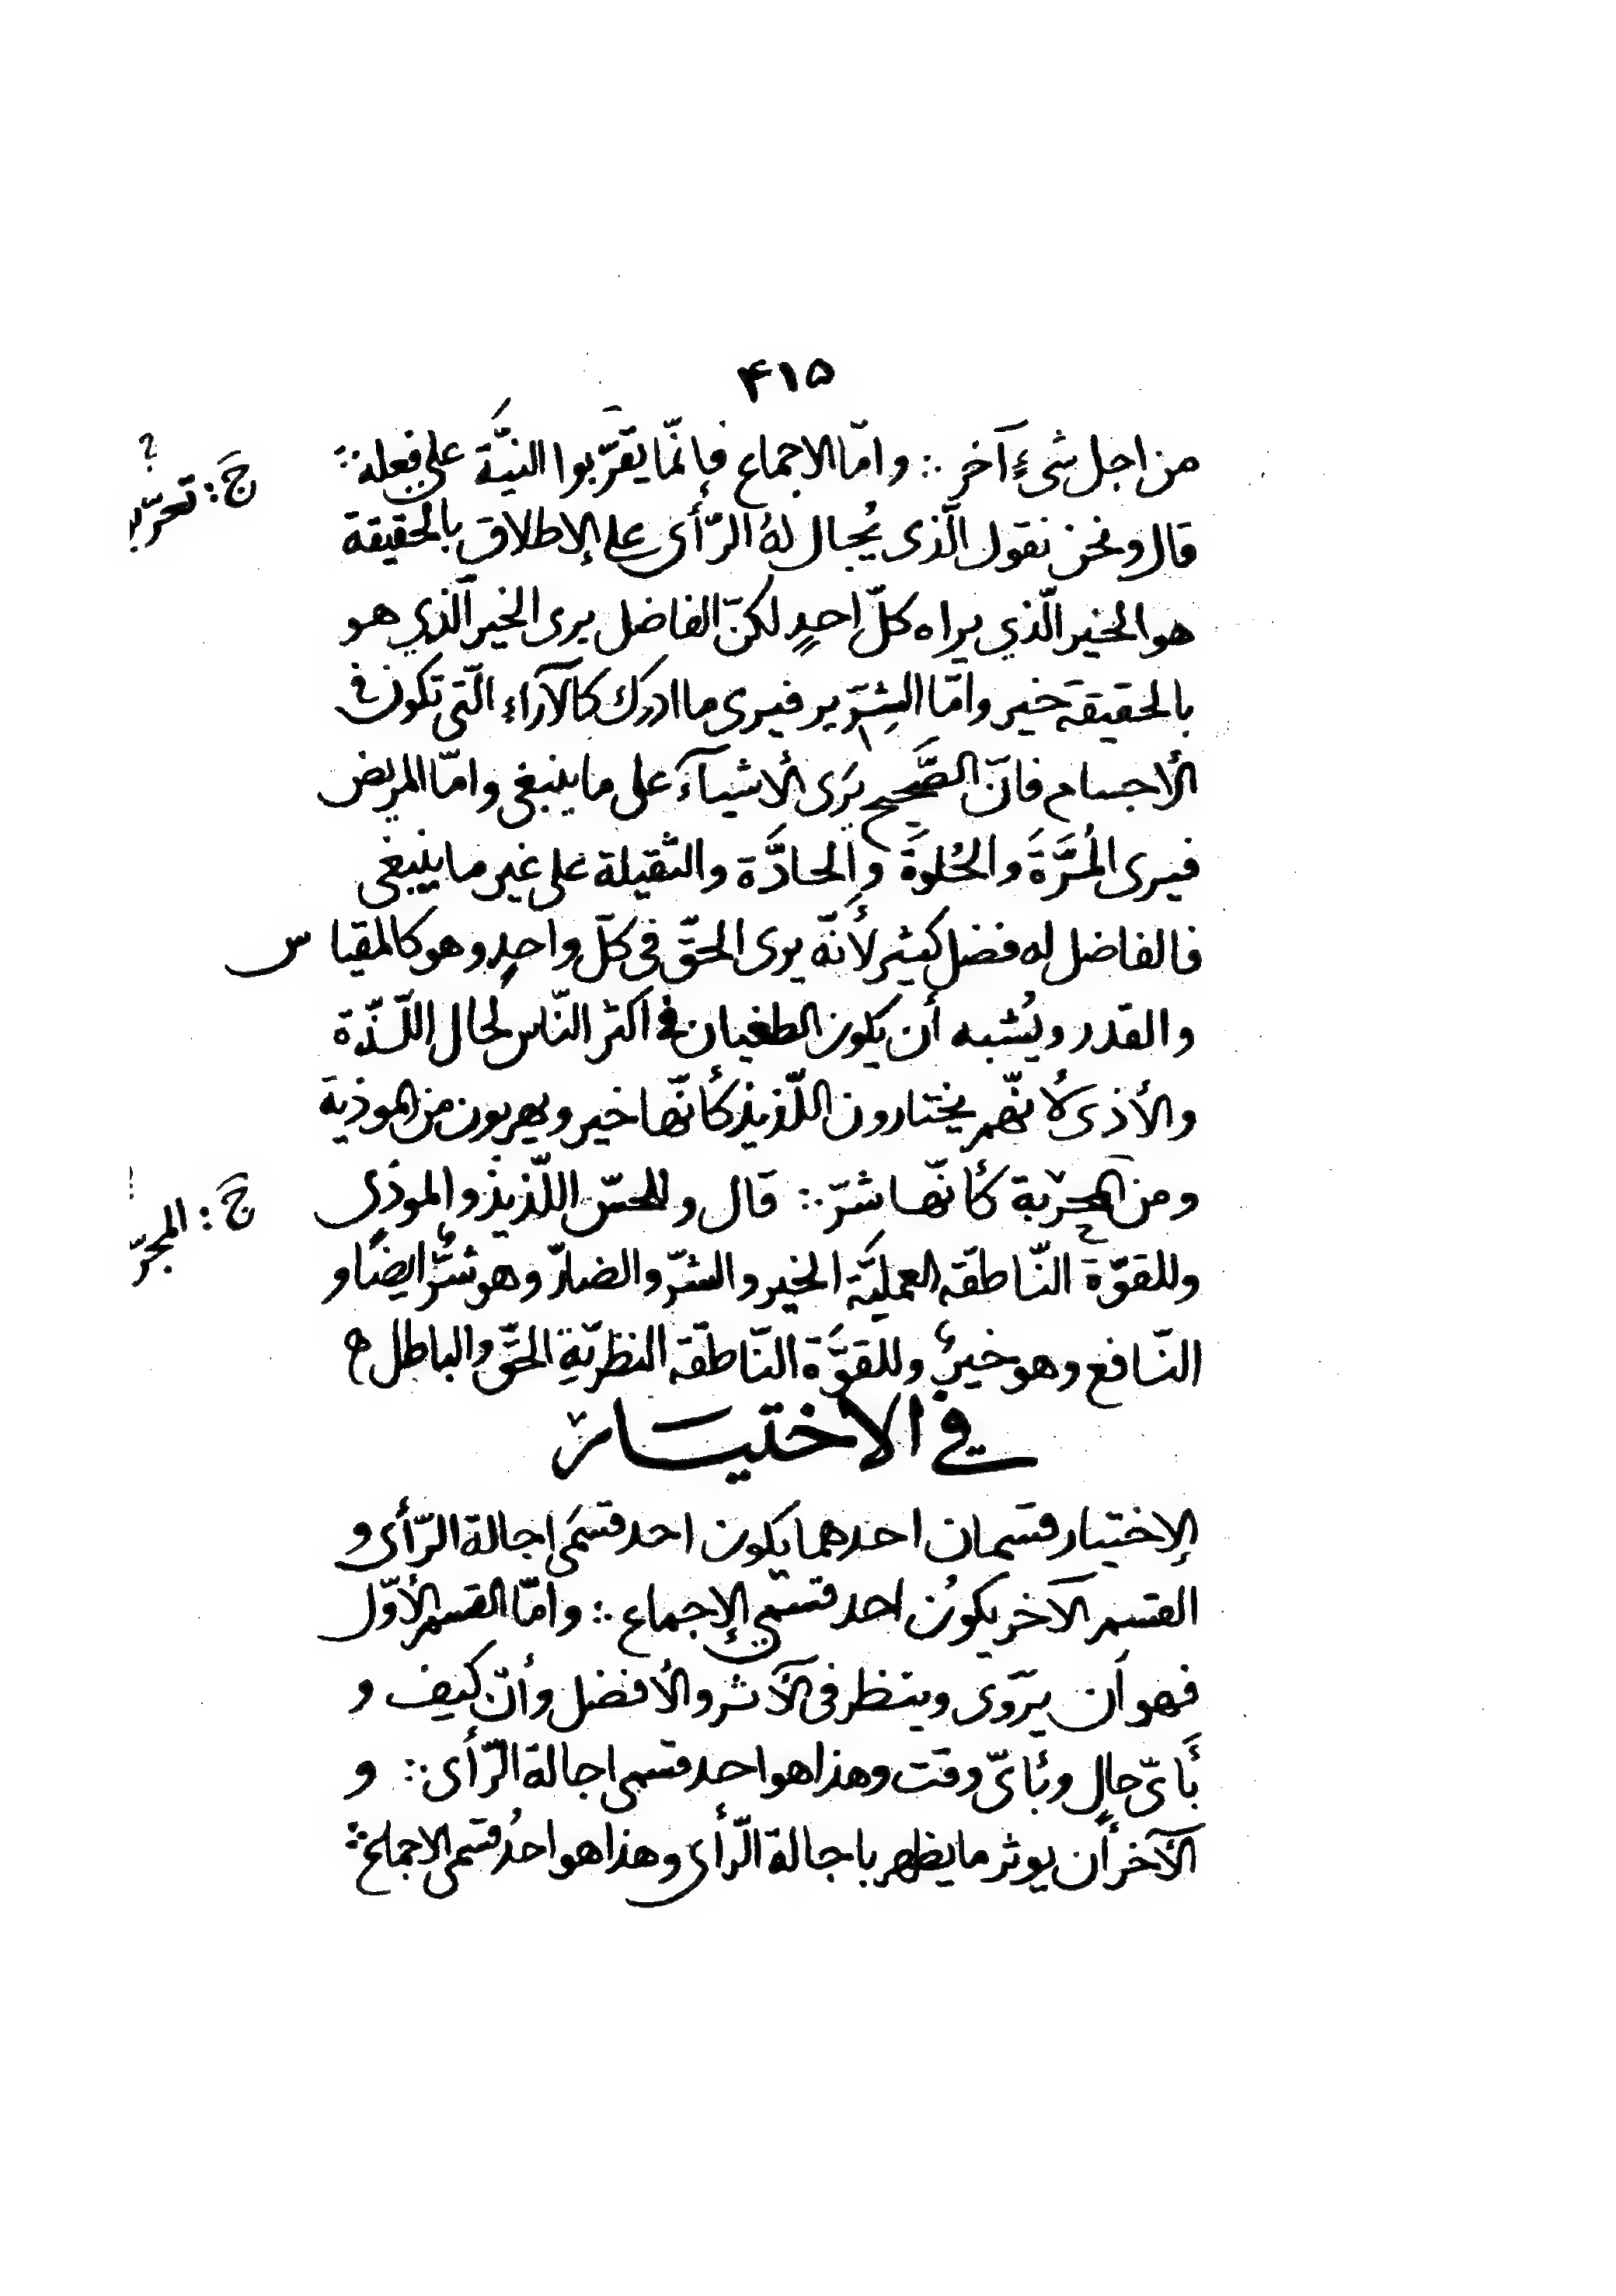 ۴۱۵
من اجل شىءٍ آخر ∴ وامّا الاجماع فإنمّا يقرّبوا النيَّة على فعله ∴
ج: تحرّيـ ؟
قال ونحن نقول الّذى يُجال لهُ الرّأى على الإطلاق بالحقيقة
هو الخير الّذي يراه كلّ احدٍ لكنّ الفاضل يرى الخير الّذي هو
بالحقيقة خير وامّا الشِرّير فيرى ما ادرك كالآراء الّتى تكون فى
الأجسام فانّ الصَّحيح يَرَى الأشيآءَ على ما ينبغى وامّا المريض
فيرى المُرَّةَ والحُلوةَ والحادَّة والثّقيلة على غير ما ينبغى
فالفاضل له فضل كثير لأنّه يرى الحقّ فى كلّ واحدٍ وهو كالمقياس
والقدر ويُشبه أن يكون الطغيان فى اكثر النّاس لحال اللّذّة
والأذى لأنّهم يختارون اللّذيذ كأنّها خير ويهربون من الموذية
ومن المحرّبة كأنّها شرّ ∴ قال وللحسّ اللّذيذ والموذى
ج: المجرّ
وللقوّة النّاطقه العمليّة الخير والشرّ والضارّ وهو شرٌّ ايضًا و
النّافع وهو خيرٌ وللقوَّة النّاطقه النظريّةِ الحقّ والباطل ه
فى الاختيار
الإختيار قسمان احدهما يكون احد قسمَى اجالة الرّأى و
القسم الآخر يكون احد قسمى الإجماع ∴ وامّا القسم الأوّل
فهو أن يروّى وينظر فى الآثر والأفضل وأنّ كيف و
بأىّ حال وبأىّ وقت وهذا هو احد قسمى اجالة الرّأى ∴ و
الآخر أن يوثر ما يظهر باجالة الرّأى وهذا هو احدُ قسمى الاجماع ∴